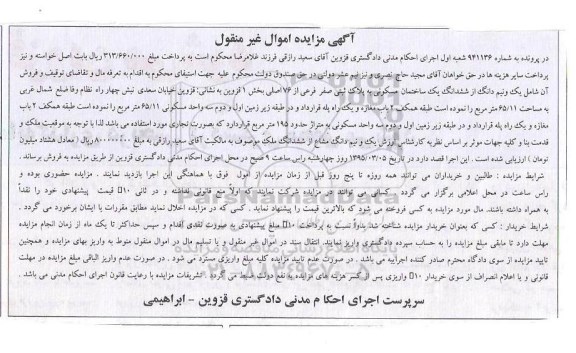 آگهی مزایده اموال غیر منقول
در پرونده به شماره ۹۴۱۱۳۶ شعبه اول اجرای احکام مدنی دادگستری قزوین آقای سعید رازقی فرزند غلامرضا محکوم است به پرداخت مبلغ ۳۱۳/۶۶۰/۰۰۰ ریال بابت اصل خواسته و نیز
پرداخت سایر هزینه ها در حق خواهان آقای مجید حاج نصری و نیز نیم عشر دولتی در حق صندوق دولت محکوم علیه جهت استیفای محکوم به اقدام به تعرفه مال و تقاضای توقیف و فروش
آن شامل یک ونیم دانگ از ششدانگ یک ساختمان مسکونی به پلاک ثبتی صفر فرعی از ۷۶ اصلی بخش ۱ قزوین به نشانی: قزوین خیابان سعدی نبش چهار راه نظام وفا ضلع شمال غربی
به مساحت ۶۵/۱۱ متر مربع را نموده است طبقه همکف ۲ باب مغازه و یک راه پله قرارداد و در طبقه زیر زمین اول و دوم سه واحد مسکونی ۶۵/۱۱ متر مربع را نموده است طبقه همکف ۲ باب
مغازه و یک راه پله قرارداد و در طبقه زیر زمین اول و دوم سه واحد مسکونی به متراژ حدود ۱۹۵ متر مربع قراردارد که بصورت تجاری مورد استفاده می باشد لذا با توجه به موقعیت ملک و
قدمت بنا و کلیه جهات موثر بر اساس نظریه کارشناس ارزش یک و نیم دانگ مشاع از ششدانگ ملک موصوف به مالکیت آقای سعید رازقی به مبلغ ریال ( معادل هشتاد میلیون
تومان ) ارزیابی شده است . این اجرا قصد دارد در تاریخ ۱۳۹۵/۰۳/۰۵ روز چهارشنبه راس ساعت ۹ صبح در محل اجرای احکام مدنی دادگستری قزوین از طریق مزایده به فروش برساند .
شرایط مزایده : طالبین و خریداران می توانند همه روزه تا پنج روز قبل از زمان مزایده از اموال فوق با هماهنگی این اجرا بازدید نمایند . مزایده حضوری بوده و
راس ساعت در محل اعلامی برگزار می گردد . کسانی می توانند در مزایده شرکت نمایند که اولاً منع قانونی نداشته و در ثانی ۱۰٪ قیمت پیشنهادی خود را نقداً
به همراه داشته باشند. مال مورد مزایده به کسی فروخته می شود که بالاترین قیمت را پیشنهاد نماید . کسی که در مزایده اخلال نماید مطابق مقررات با ایشان برخورد می گردد .
شرایط خریدار : کسی که بعنوان خریدار مزایده شناخته شد بدواً نسبت به پرداخت ۱۰٪ مبلغ پیشنهادی به صورت نقدی اقدام و سپس حداکثر تا یک ماه از زمان انجام مزایده
مهلت دارد تا مابقی مبلغ مزایده را به حساب سپرده دادگستری واریز نمایند. انتقال سند در اموال غیر منقول و یا تسلیم مال در اموال منقول منوط به واریز بهای مزایده و همچنین
تایید مزایده از سوی دادگاه محترم صادر کننده اجراییه می باشد . در صورت عدم تایید مزایده کلیه مبلغ واریزی مسترد می شود . در صورت عدم واریز الباقی مبلغ مزایده در مهلت
قانونی و یا اعلام انصراف از سوی خریدار ۱۰٪ واریزی پس از کسر هزینه های مزایده به نفع دولت ضبط می گردد . تشریفات مزایده با رعایت قانون اجرای احکام مدنی می باشد .
سرپرست اجرای احکام مدنی دادگستری قزوین - ابراهیمی